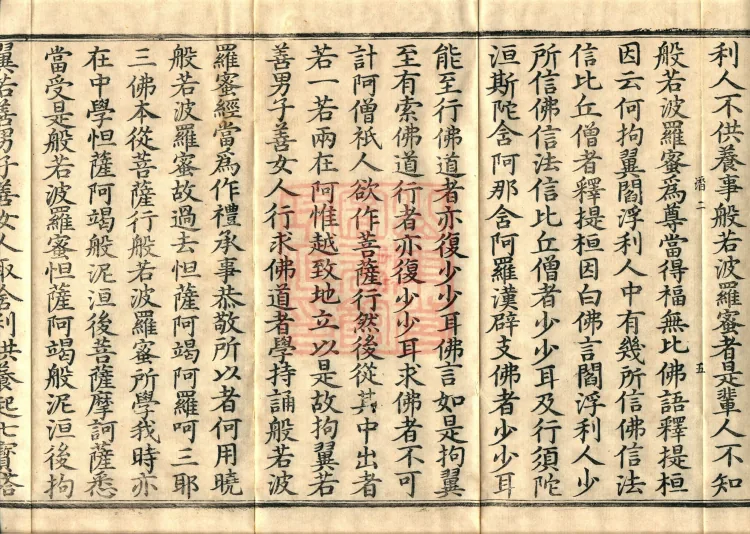 利人不供養事般若波羅蜜者是輩人不知
潛二
五
般若波羅蜜爲尊當得福無比佛語釋提桓
因云何拘翼閻浮利人中有幾所信佛信法
信比丘僧者釋提桓因白佛言閻浮利人少
所信佛信法信比丘僧者少少耳及行須陀
洹斯陀含阿那含阿羅漢辟支佛者少少耳
能至行佛道者亦復少少耳佛言如是拘翼
至有索佛道行者亦復少少耳求佛者不可
計阿僧祇人欲作菩薩行然後從其中出者
若一若兩在阿惟越致地立以是故拘翼若
善男子善女人行求佛道者學持誦般若波
羅蜜經當爲作禮承事恭敬所以者何用曉
般若波羅蜜故過去怛薩阿竭阿羅呵三耶
三佛本從菩薩行般若波羅蜜所學我時亦
在中學怛薩阿竭般泥洹後菩薩摩訶薩悉
當受是般若波羅蜜怛薩阿竭般泥洹後拘
翼若善男子善女人取舍利供養起七寶塔